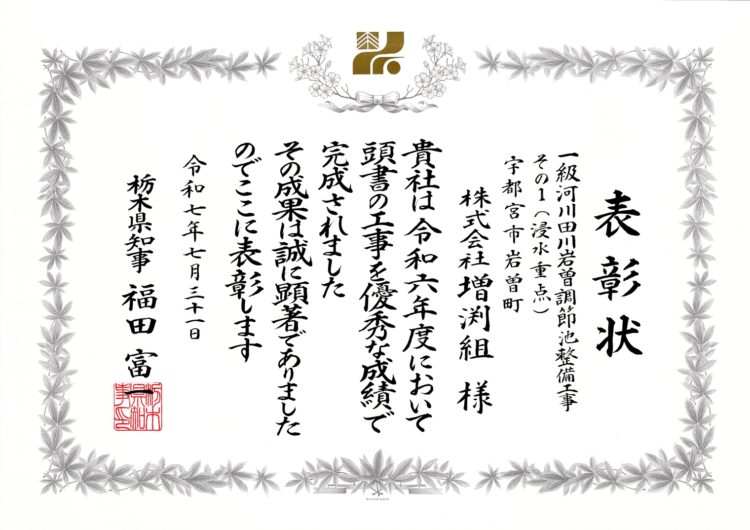 表彰状
一級河川田川岩曽調節池整備工事
その1(浸水重点)
宇都宮市岩曽町
株式会社増渕組 様
貴社は令和六年度において
頭書の工事を優秀な成績で
完成されました
その成果は誠に顕著でありました
のでここに表彰します
令和七年七月三十一日
栃木県知事 福田富一
栃木県知事印